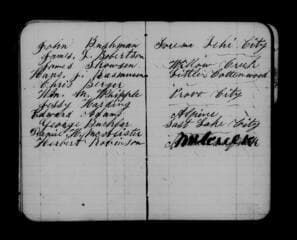 John Bushman
James J. Robertson
James Snowden
Hans J. Rasmussen
Chris Berger
Wm. M. Whipple
Jessy Harding
Edward Adams
George Buckler
Daniel H. McAlister
Herbert Robinson
City
Willow Creek
Little Cottonwood
Provo City
Alpine
Salt Lake City